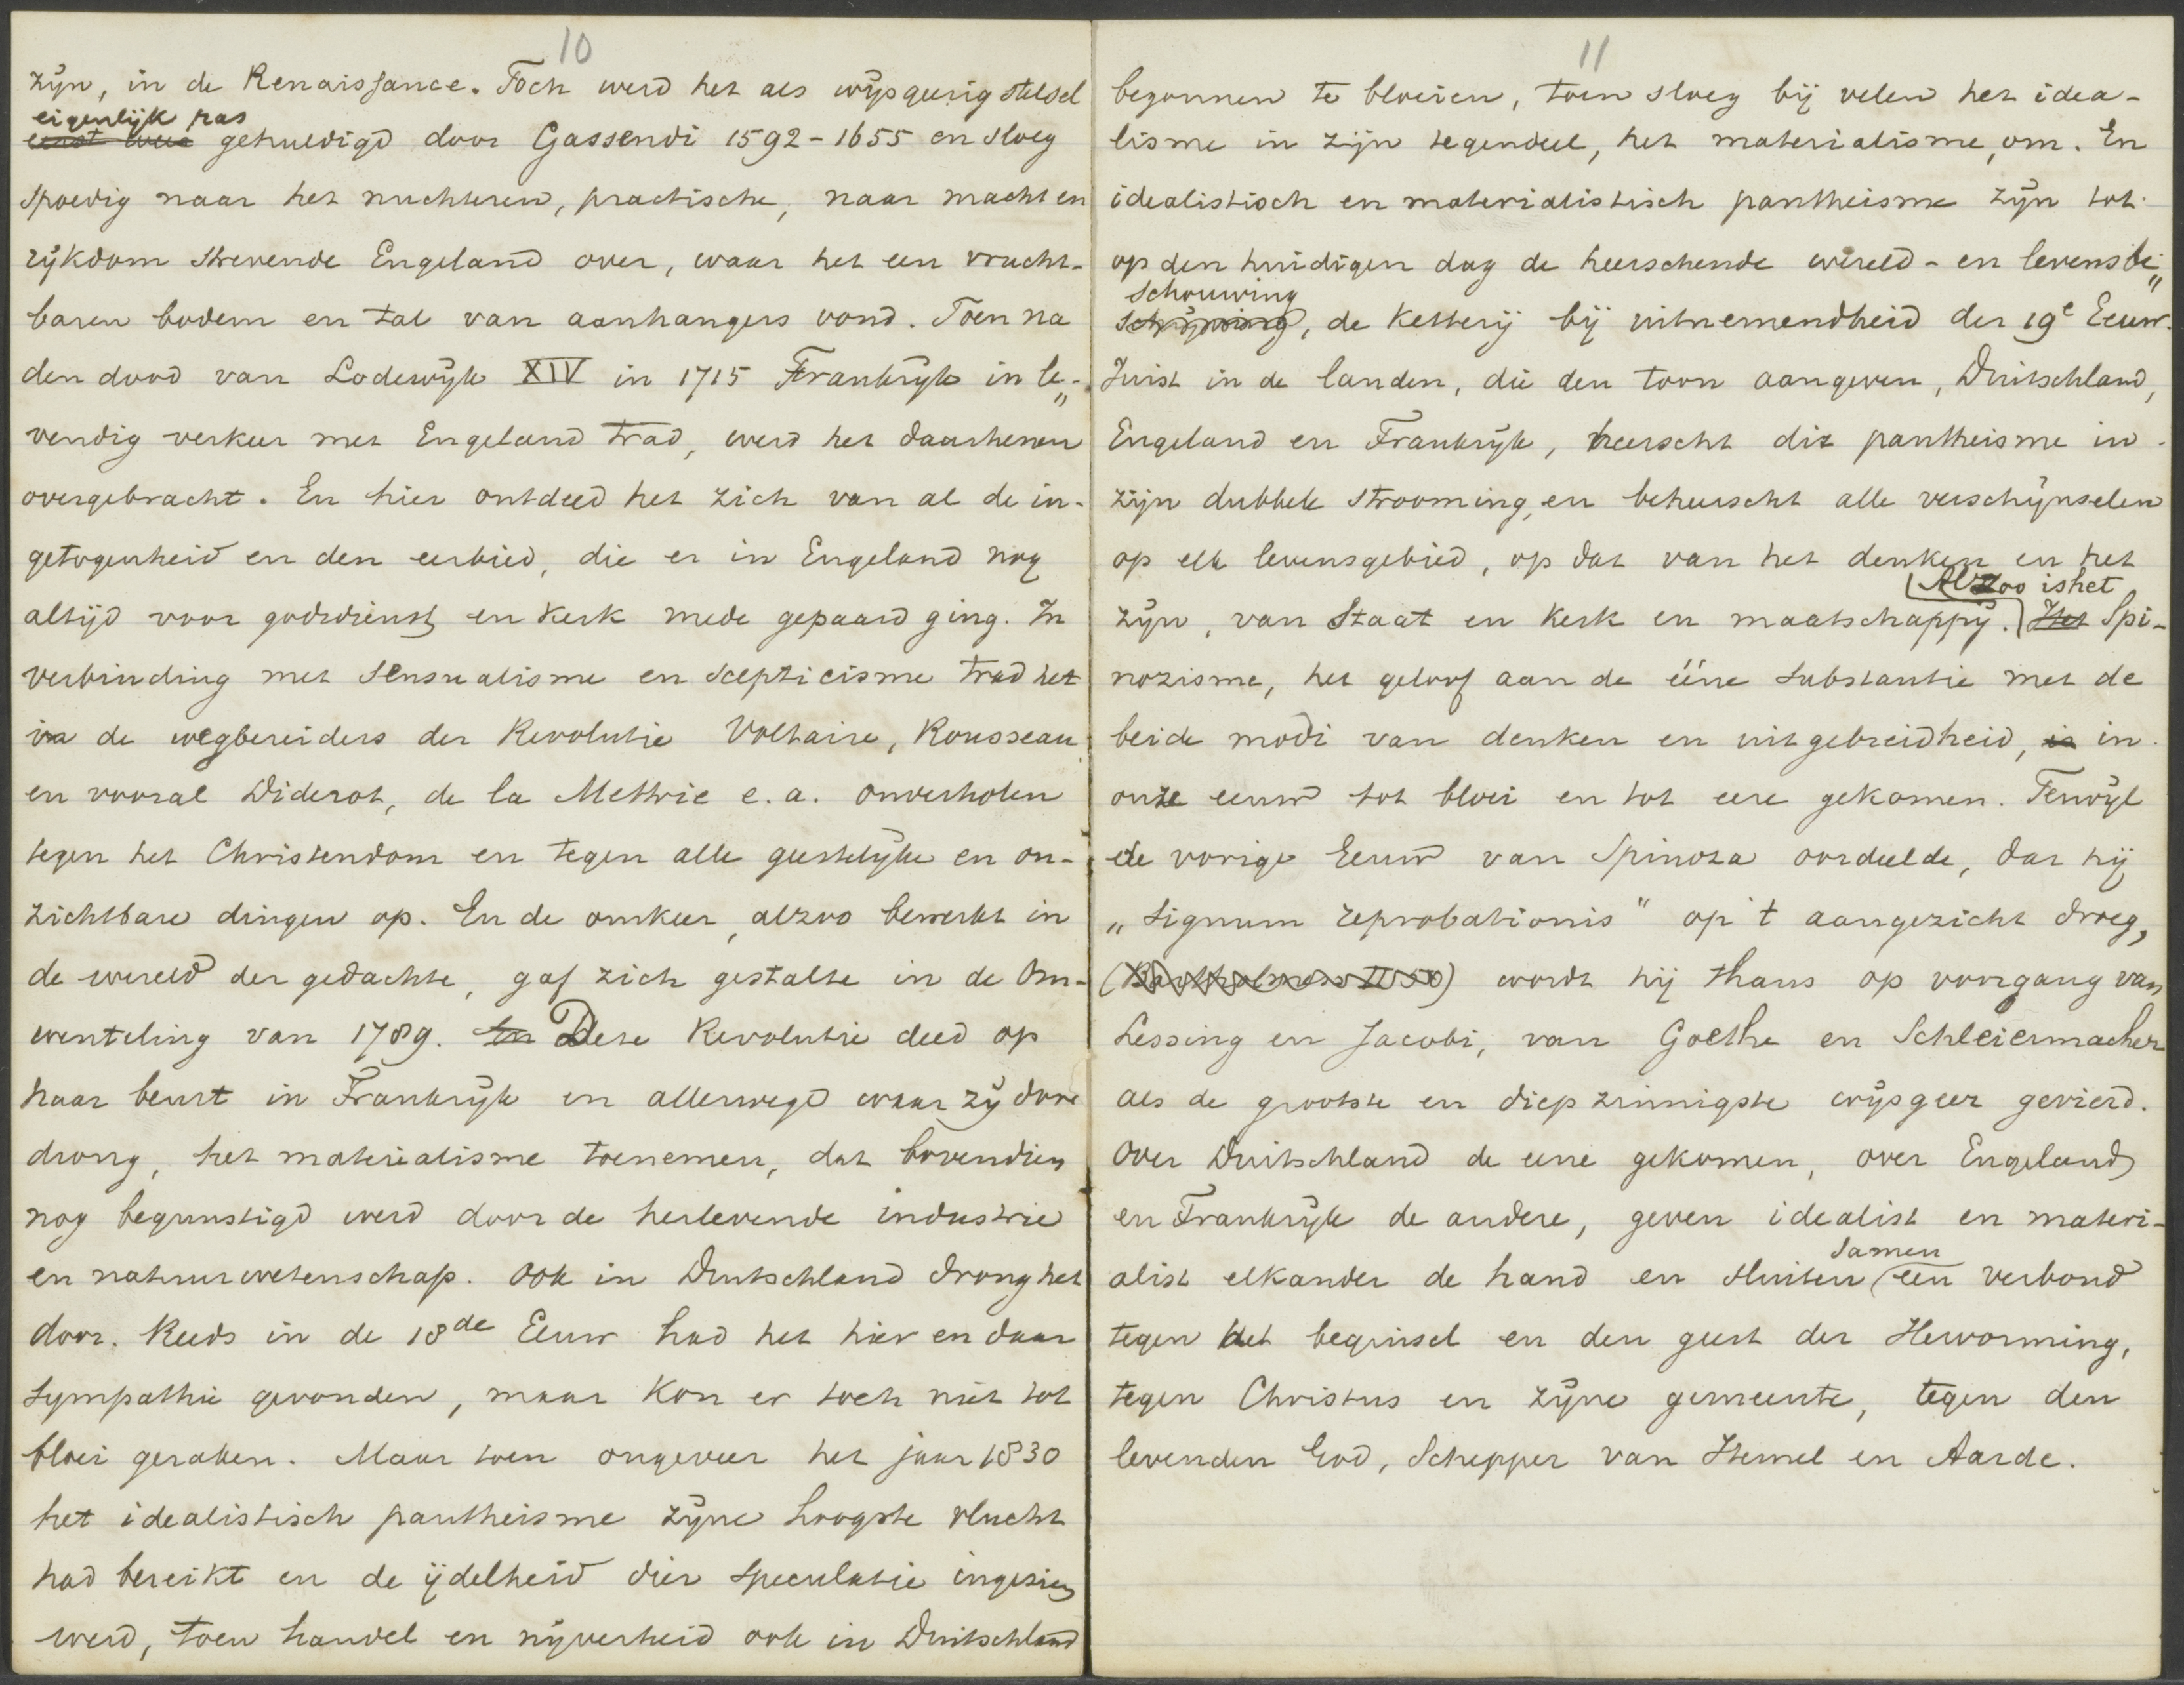 10
zijn, in de Renaissance. Toch werd het als wijsgeerig stelsel
eigenlijk pas
eerst weer gehuldigd door Gassendi 1592-1655 en sloeg
spoedig naar het nuchteren, practische, naar macht en
rijkdom strevende Engeland over, waar het een vrucht-
baren bodem en tal van aanhangers vond. Toen na
den dood van Lodewijk XIV in 1715 Frankrijk in le-
vendig verkeer met Engeland trad, werd het daarhenen
overgebracht. En hier ontdeed het zich van al de in-
getogenheid en den eerbied, die er in Engeland nog
altijd voor godsdienst en kerk mede gepaard ging. In
verbinding met sensualisme en scepticisme trad het
in de wegbereiders der Revolutie Voltaire, Rousseau,
en vooral Diderot, de la Mettrie e.a. onverholen
tegen het Christendom en tegen alle geestelijke en on-
zichtbare dingen op. En de omkeer, alzoo bewerkt in
de wereld der gedachte, gaf zich gestalte in de Om-
wenteling van 1789. En Deze Revolutie deed op
haar beurt in Frankrijk en allerwegd waar zij door
drong, het materialisme toenemen, dat bovendien
nog begunstigd werd door de herlevende industrie
en natuurwetenschap. Ook in Duitschland drong het
door. Reeds in de 18de Eeuw had het hier en daar
sympathie gevonden, maar kon er toch niet tot
bloei geraken. Maar toen ongeveer het jaar 1830
het idealistisch pantheisme zijne hoogste vlucht
had bereikt en de ijdelheid dier speculatie ingezien
werd, toen handel en nijverheid ook in Duitschland
11
begonnen te bloeien, toen sloeg bij velen het idea-
lisme in zijn tegendeel, het materialisme, om. En
idealistisch en materialistisch pantheisme zijn tot
op den huidigen dag de heerschende wereld- en levensbe„
schouwing
schrijving, de Ketterij bij uitnemendheid der 19e Eeuw.
Juist in de landen, die den toon aangeven, Duitschland,
Engeland en Frankrijk, heerscht dit pantheisme in
zijn dubbele strooming, en beheerscht alle verschijnselen
op elk levensgebied, op dat van het denken en het
Alzoo is het
zijn, van Staat en Kerk en maatschappij. Het Spi-
nozisme, het geloof aan de ééne substantie met de
beide modi van denken en uitgebreidheid, is in
onze eeuw tot bloei en tot eere gekomen. Terwijl
de vorige Eeuw van Spinoza oordeelde, dat hij
„signum reprobationis" op 't aangezicht droeg,
(Bartholmess II 50) wordt hij thans op voorgang van
Lessing en Jacobi, van Goethe en Schleiermacher
als de grootste en diepzinnigste wijsgeer gevierd.
Over Duitschland de eene gekomen, over Engeland
en Frankrijk de andere, geven idealist en materi-
samen
alist elkander de hand en sluiten een verbond
tegen het beginsel en den geest der Hervorming,
tegen Christus en zijne gemeente, tegen den
levenden God, Schepper van Hemel en Aarde.